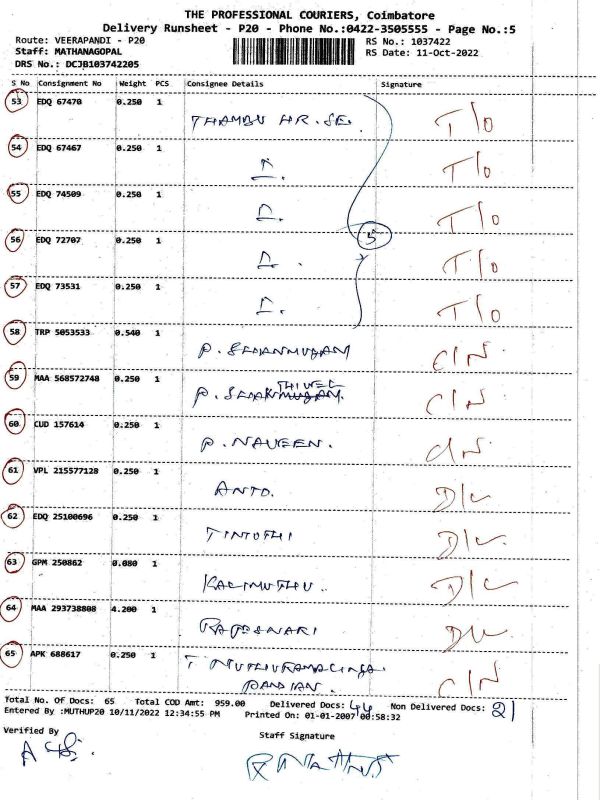 THE PROFESSIONAL COURIERS, Coimbatore
Delivery Runsheet - P20 - Phone No.:0422-3505555 - Page No.:5
Route: VEERAPANDI - P20 RS No.: 1037422
Staff: MATHANAGOPAL RS Date: 11-Oct-2022
DRS No.: DCJB103742205
S No Consignment No Weight PCS Consignee Details Signature
53 EDQ 67470 0.250 1
THAMBU HR. SE. T/o
54 EDQ 67467 0.250 1
T/o
55 EDQ 74509 0.250 1
T/o
5
56 EDQ 72707 0.250 1
T/o
57 EDQ 73531 0.250 1
T/o
58 TRP 5053533 0.540 1
P. SHANMUGAM C/N
59 MAA 568572748 0.250 1
P. C/N
60 CUD 157614 0.250 1
P. NAVEEN. C/N
61 VPL 215577128 0.250 1
ANTO. D/L
62 EDQ 25100696 0.250 1
D/L
63 GPM 250862 0.080 1
KALIMUTHU. D/L
64 MAA 293738808 4.200 1
D/L
65 APK 688617 0.250 1
PANDIAN. C/N
Total No. Of Docs: 65 Total COD Amt: 959.00 Delivered Docs: 44 Non Delivered Docs: 21
Entered By :MUTHUP20 10/11/2022 12:34:55 PM Printed On: 01-01-2007 00:58:32
Verified By Staff Signature